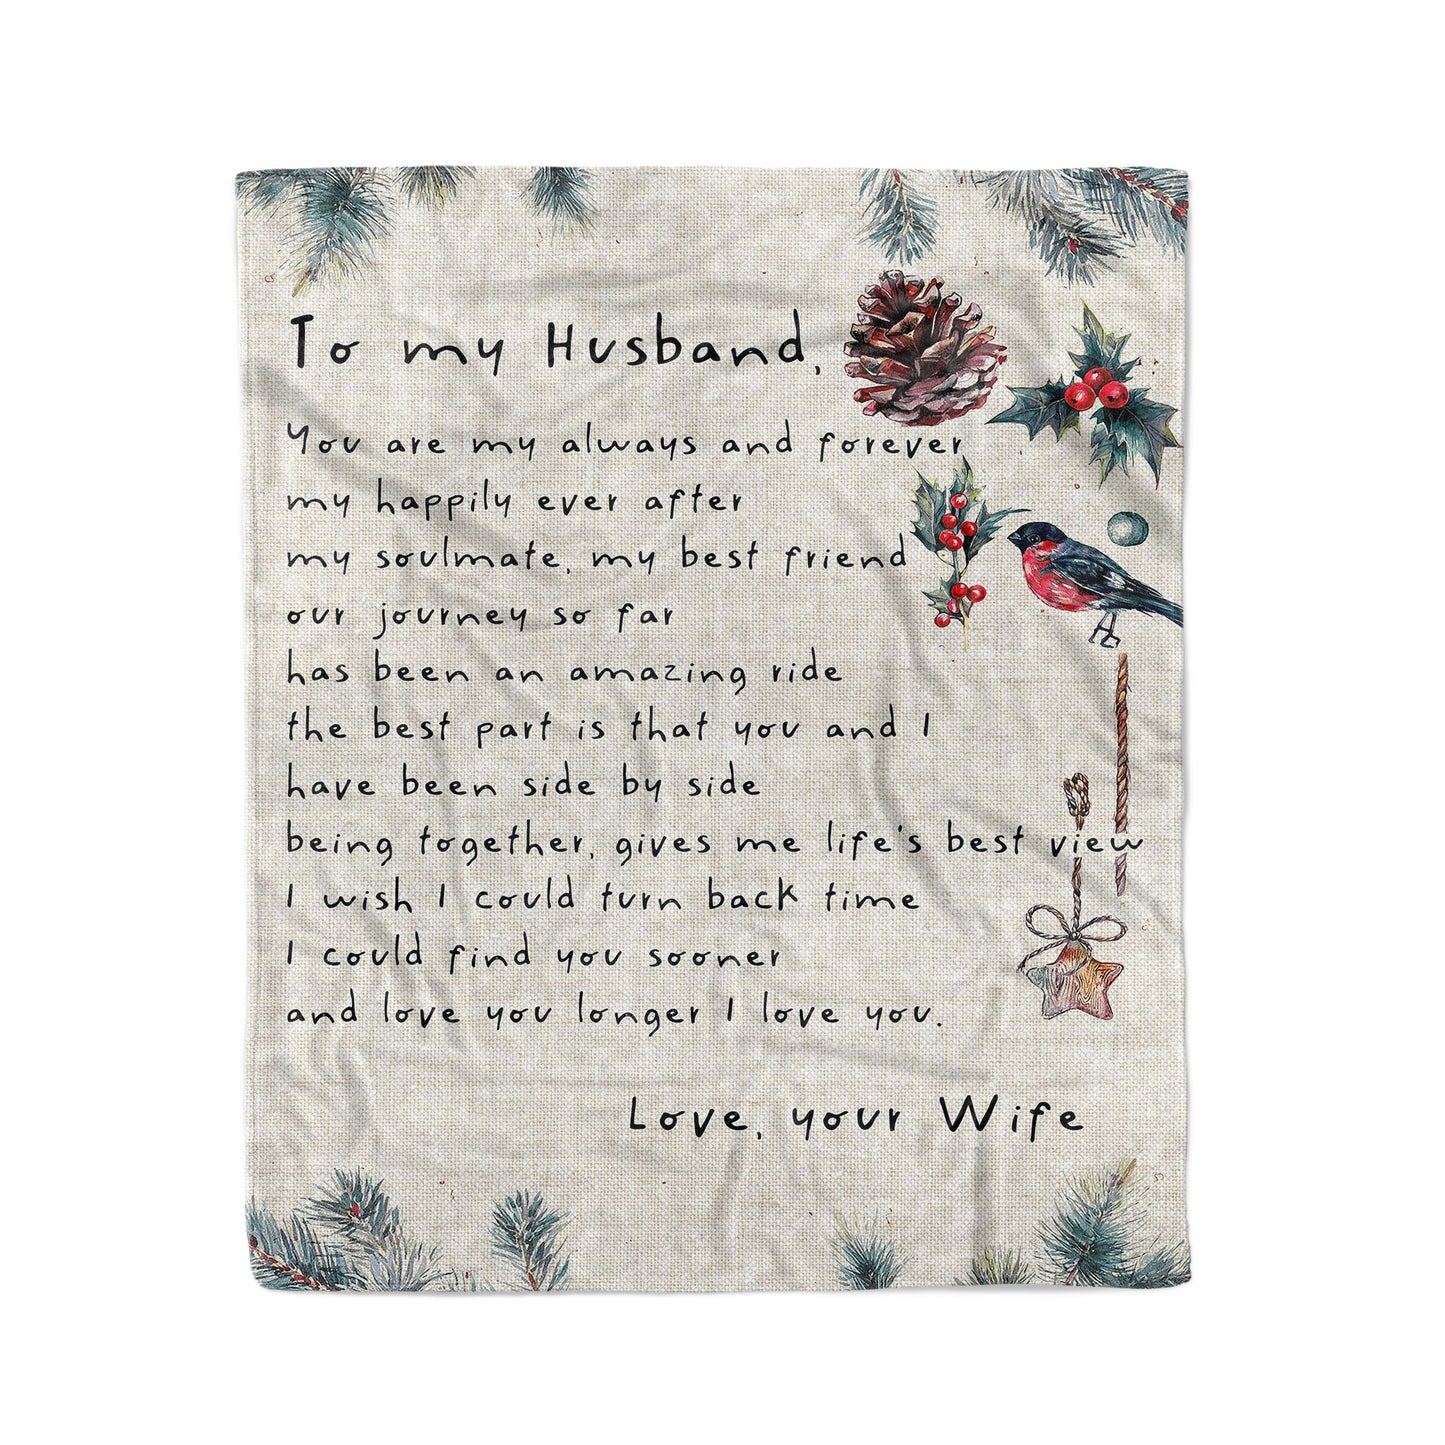 To my Husband,
You are my always and forever
my happily ever after
my soulmate, my best friend
our journey so far
has been an amazing ride
the best part is that you and I
have been side by side
being together, gives me life's best view
I wish I could turn back time
I could find you sooner
and love you longer I love you.
Love, your Wife